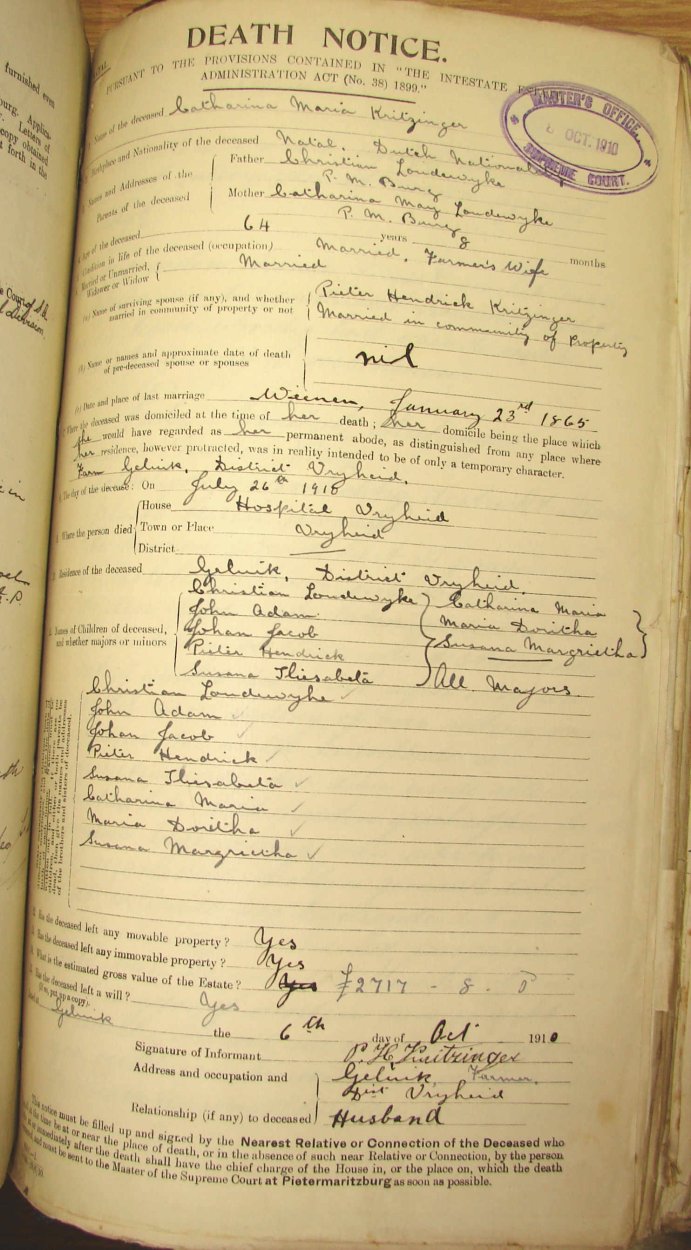 furnished even
burg. Applica-
Letters of
copy obtained
forth in the
DEATH NOTICE.
PURSUANT TO THE PROVISIONS CONTAINED IN "THE INTESTATE
ADMINISTRATION ACT (No. 38) 1899."
MASTER'S OFFICE,
OCT. 1910
SUPREME COURT.
Name of the deceased Catharina Maria Kritzinger
Birthplace and Nationality of the deceased Natal. Dutch
Names and Addresses of the Parents of the deceased
Father Christian Loudewyke
P. M. Burg
Mother Catharina May Loudewyke
P. M. Burg
Age of the deceased 64 years 8 months
Condition in life of the deceased (occupation) Married, Farmer's Wife
Married or Unmarried, Widower or Widow Married
(a) Name of surviving spouse (if any), and whether married in community of property or not
Pieter Hendrick Kritzinger
Married in community of Property
(b) Name or names and approximate date of death of pre-deceased spouse or spouses nil
(c) Date and place of last marriage Weenen, January 23rd 1865
Where the deceased was domiciled at the time of her death; her domicile being the place which
she would have regarded as her permanent abode, as distinguished from any place where
her residence, however protracted, was in reality intended to be of only a temporary character.
Farm Geluik, District Vryheid.
The day of the decease: On July 26th 1910
Where the person died
House Hospital Vryheid
Town or Place Vryheid
District
Residence of the deceased Geluik, District Vryheid.
Names of Children of deceased, and whether majors or minors
Christian Loudewyke
John Adam
Johan Jacob
Pieter Hendrick
Susana Iliesabeta
Catharina Maria
Maria Doritha
Susana Margrietha
All Majors.
Christian Loudewyke
John Adam
Johan Jacob
Pieter Hendrick
Susana Iliesabeta
Catharina Maria
Maria Doritha
Susana Margrietha
of the brothers and sisters of deceased.
Has the deceased left any movable property? Yes
Has the deceased left any immovable property? Yes
What is the estimated gross value of the Estate? Yes £2717 - 8. 0
Has the deceased left a will? Yes
(If so, put up a copy).
Dated at Geluik the 6th day of Oct 1910
Signature of Informant P. H. Kritzinger
Address and occupation and
Geluik, Farmer.
Dist Vryheid
Relationship (if any) to deceased Husband
This notice must be filled up and signed by the Nearest Relative or Connection of the Deceased who
at the time be at or near the place of death, or in the absence of such near Relative or Connection, by the person
who at or immediately after the death shall have the chief charge of the House in, or the place on, which the death
and must be sent to the Master of the Supreme Court at Pietermaritzburg as soon as possible.